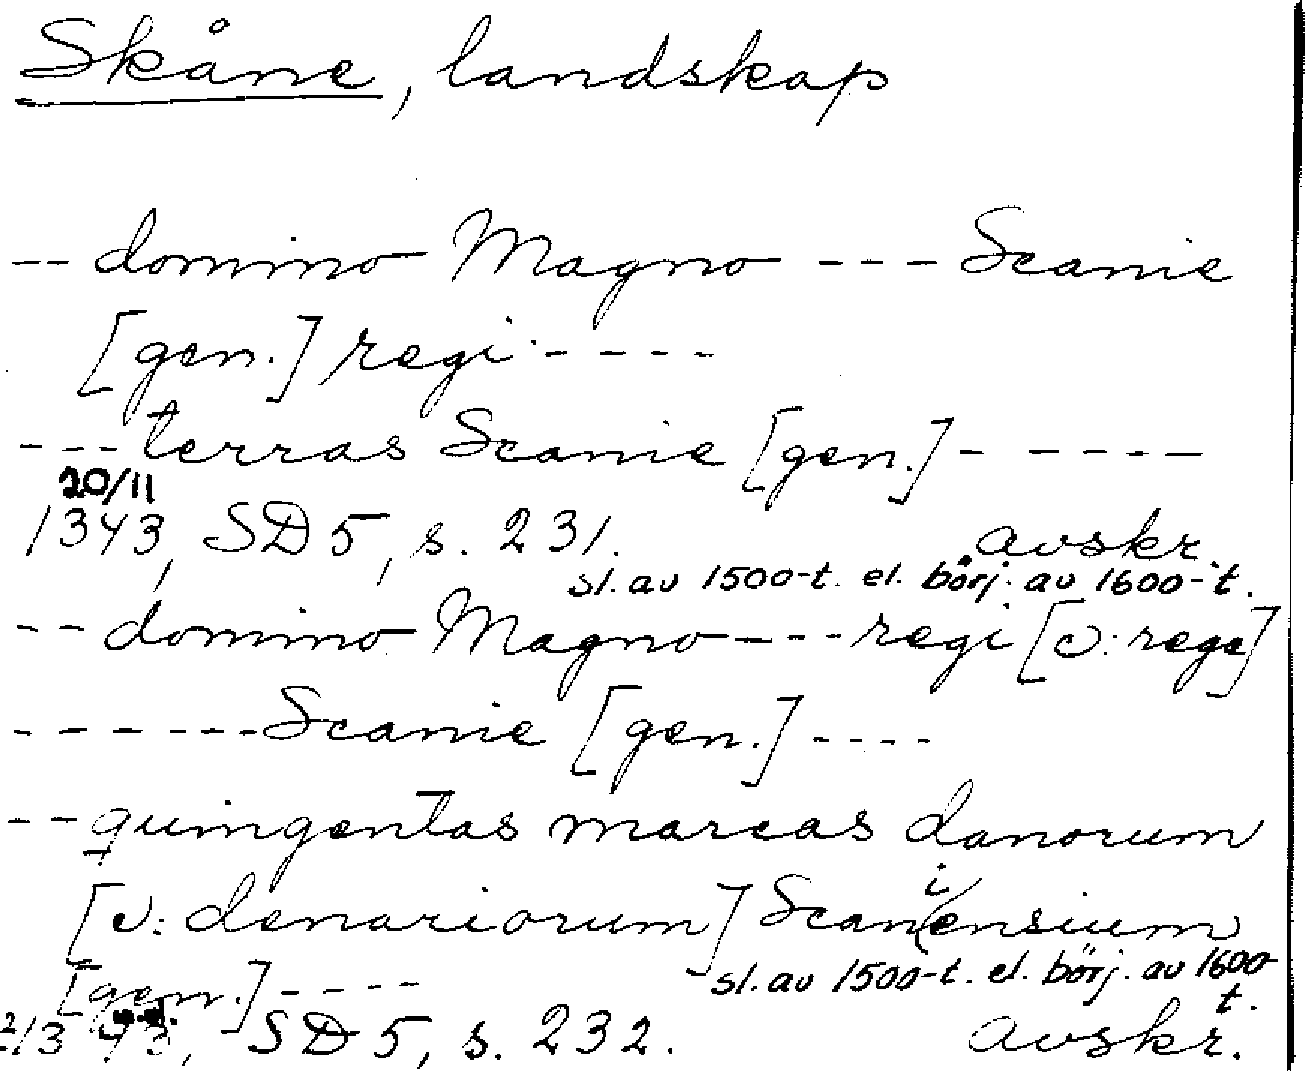 Skåne, landskap
-- domino Magno --- Scanie
[gen.] regi ----
--- terras Scanie [gen.] - - - - -
20/11
1343, SD 5, s. 231. avskr.
sl. av 1500-t. el. börj. av 1600-t.
-- domino Magno --- regi [ɔ: rege]
------ Scanie [gen.] ----
-- quingentas marcas danorum
[ɔ: denariorum] Scaniensium
[gen.] ---- sl. av 1500-t. el. börj. av 1600-t.
1343, SD 5, s. 232. avskr.